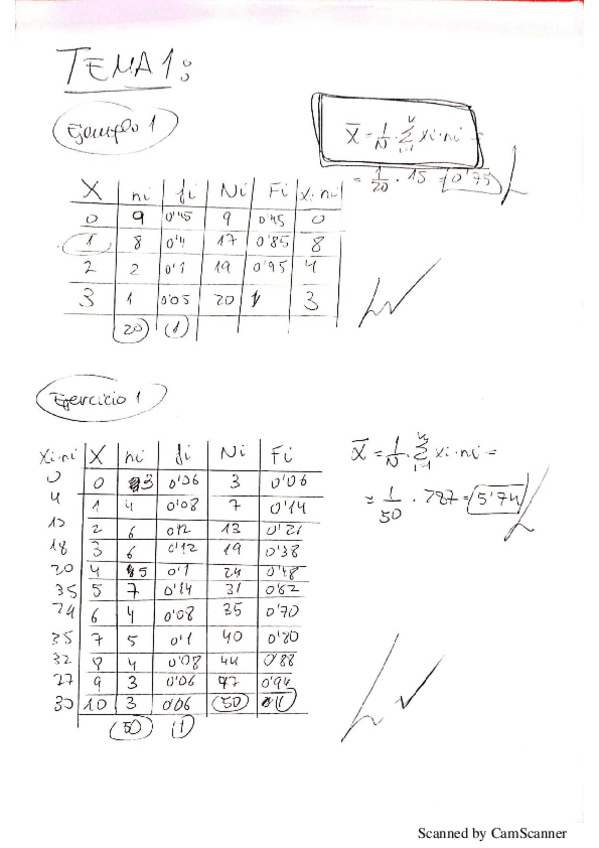 TEMA 1:
Ejemplo 1
X̄ = 1/N · Σ xi·ni =
= 1/20 · 15 = 0'75
X ni fi Ni Fi xi·ni
0 9 0'45 9 0'45 0
1 8 0'4 17 0'85 8
2 2 0'1 19 0'95 4
3 1 0'05 20 1 3
20 1
Ejercicio 1
X̄ = 1/N · Σ xi·ni =
= 1/50 · 287 = 5'74
xi·ni X ni fi Ni Fi
0 0 3 0'06 3 0'06
4 1 4 0'08 7 0'14
12 2 6 0'12 13 0'26
18 3 6 0'12 19 0'38
20 4 5 0'1 24 0'48
35 5 7 0'14 31 0'62
24 6 4 0'08 35 0'70
35 7 5 0'1 40 0'80
32 8 4 0'08 44 0'88
27 9 3 0'06 47 0'94
30 10 3 0'06 50 1
50 1
Scanned by CamScanner